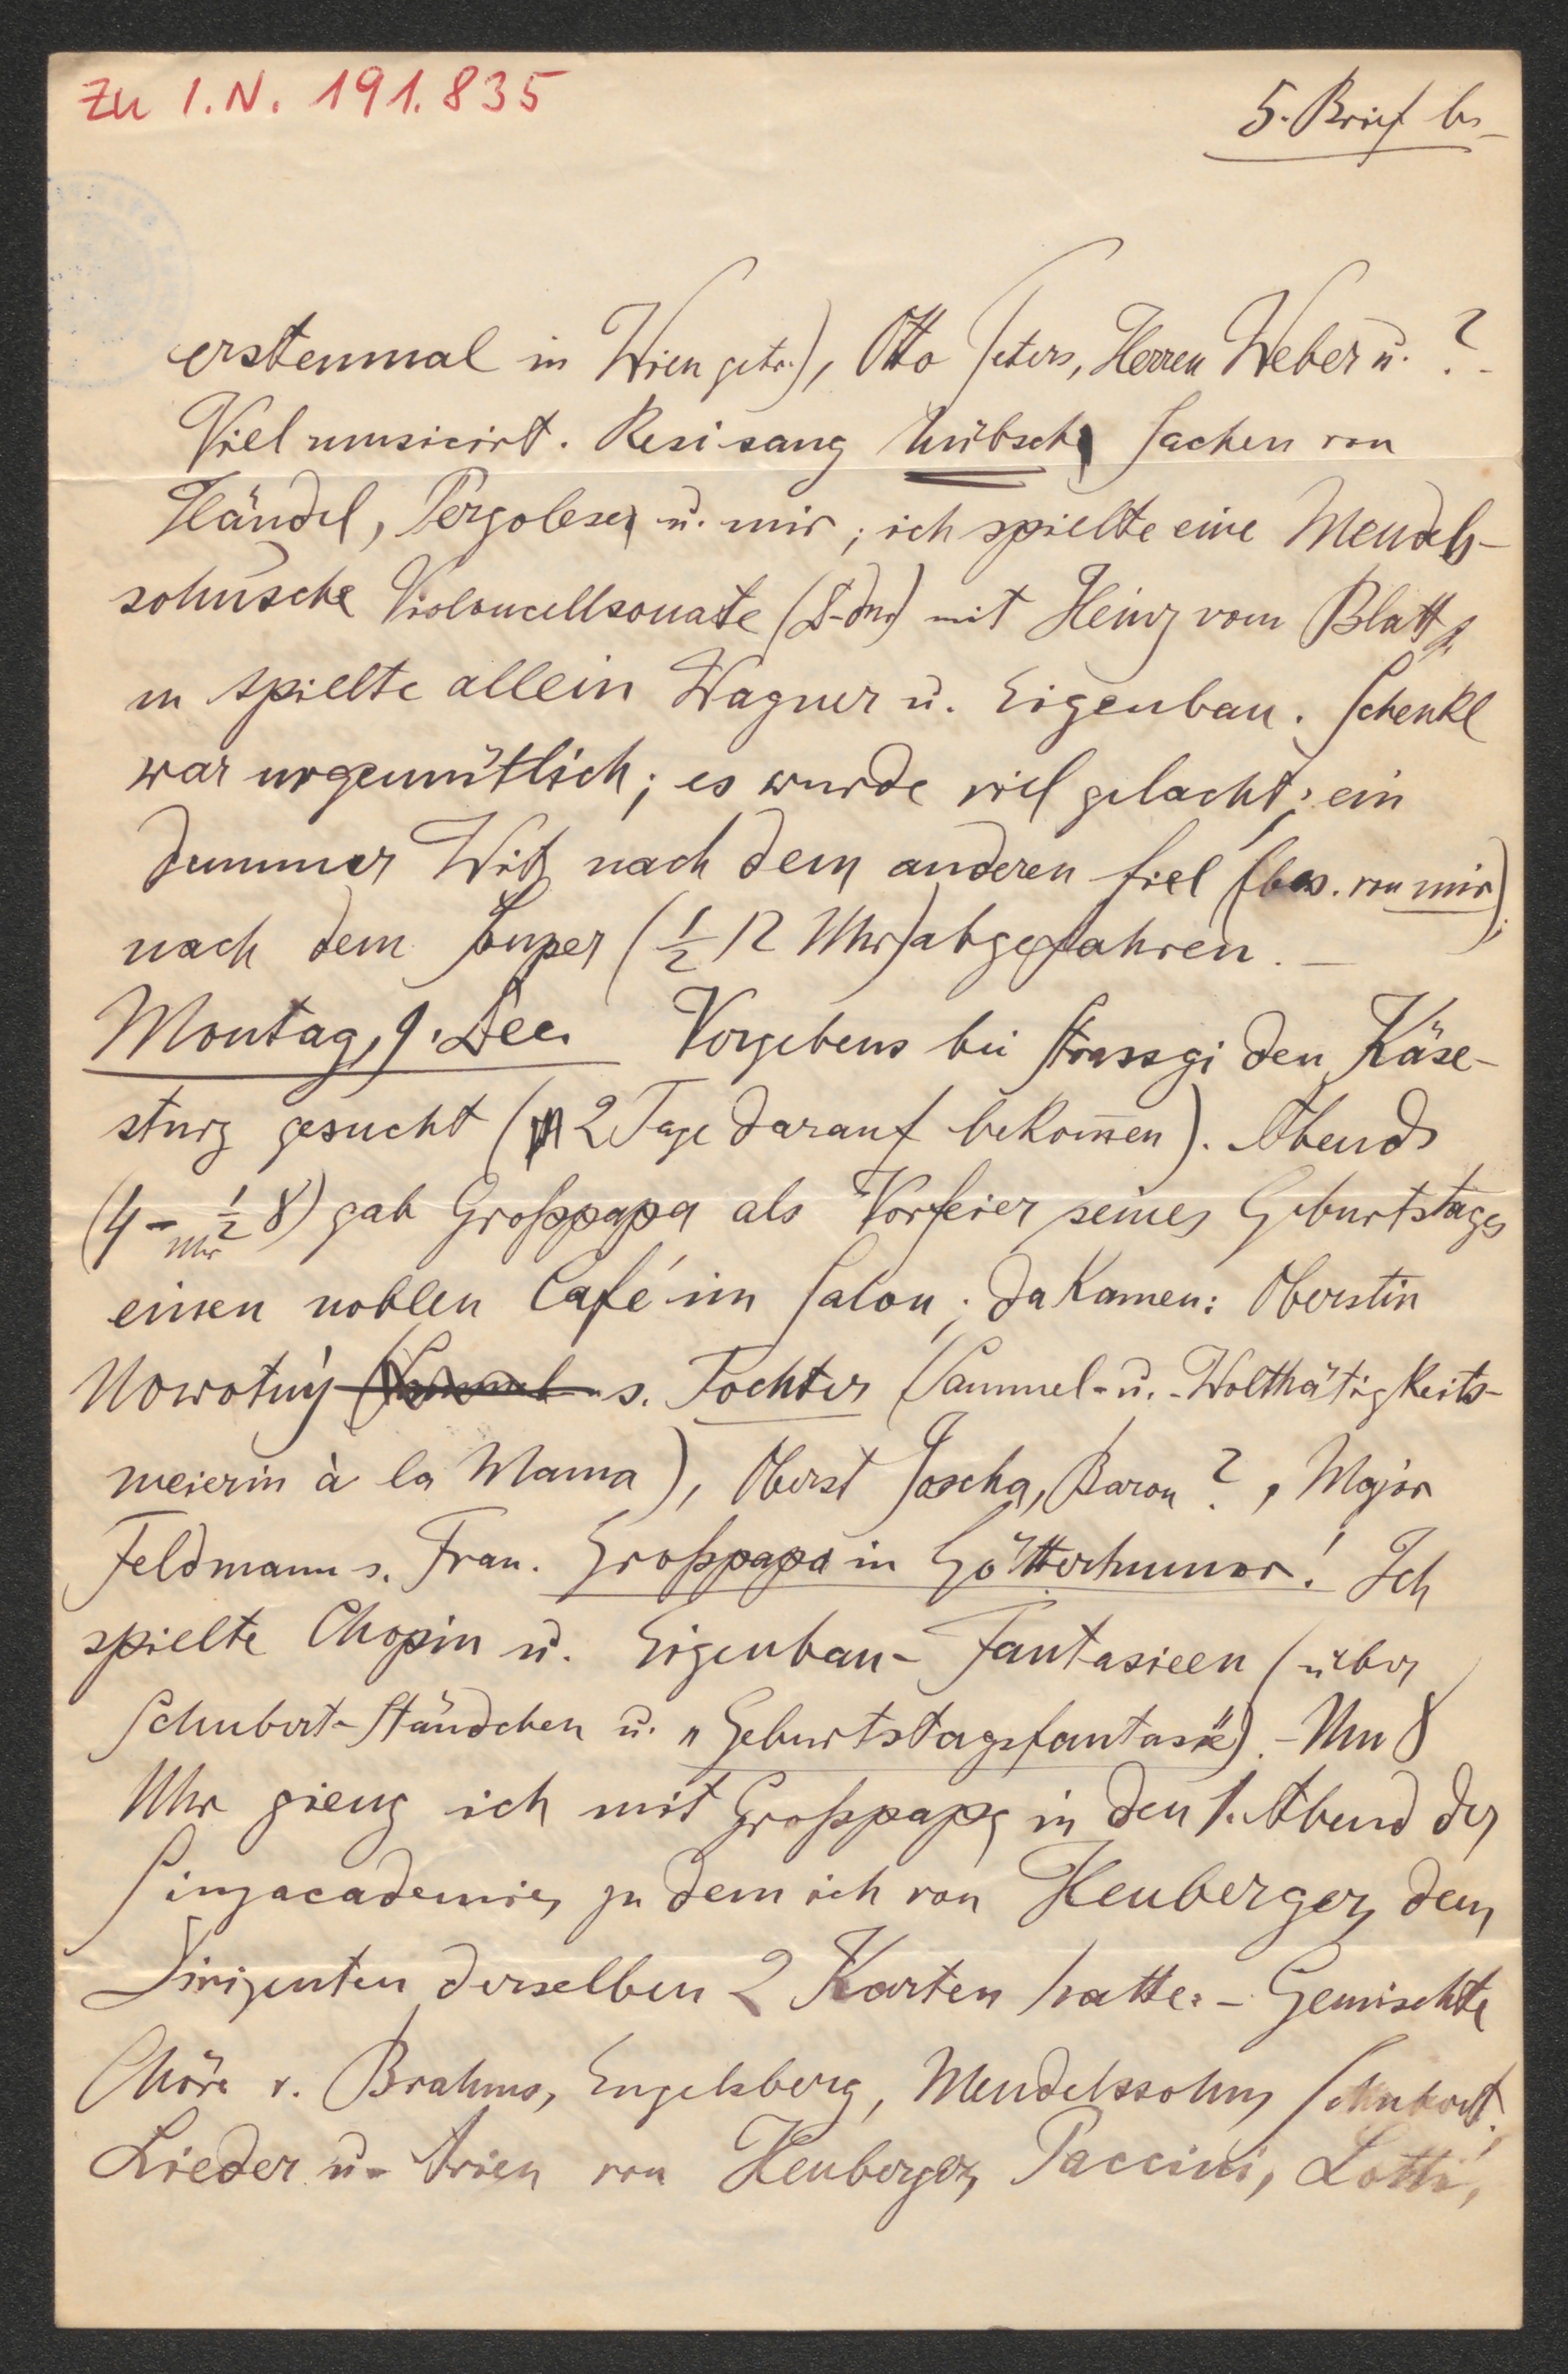 Zu I.N. 191.835
5. Brief b.
erstenmal in Wien getr.), Otto Peters, Herren Weber u. ?-
Viel musicirt. Resi sang hübsche Sachen von
Händel, Pergolese u. mir; ich spielte eine Mendels-
sohnsche Violoncellsonate (D-dur) mit Heinz vom Blatt
u spielte allein Wagner u. Eigenbau. Schenkl
war urgemütlich; es wurde viel gelacht; ein
dummer Witz nach dem anderen fiel (bes. von mir);
nach dem Souper (½ 12 Uhr) abgefahren. –
Montag, 9. Dec. Vergebens bei Strassgi den Käse-
sturz gesucht (2 Tage darauf bekom̅en). Abends
(4 - ½ 8) gab Großpapa als Vorfeier seines Geburtstages
Uhr
einen noblen Café im Salon; da kamen: Oberstin
Nowotny s. Tochter (Sammel- u. -Wolthätigkeits-
meierin à la Mama), Oberst Joscha, Baron ?, Major
Feldmann s. Frau. Großpapa in Götterhumor! Ich
spielte Chopin u. Eigenbau-Fantasieen (über
Schubert-Ständchen u. „Geburtstagsfantasie"). - Um 8
Uhr gieng ich mit Großpapa in den 1. Abend der
Singacademie, zu dem ich von Heuberger, dem
Dirigenten derselben 2 Karten hatte. - Gemischte
Chöre v. Brahms, Engelsberg, Mendelssohn, Schubert;
Lieder u. Arien von Heuberger, Paccini, Lotti,